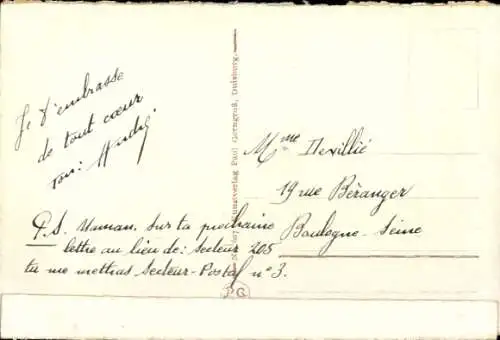 Je t'embrasse
de tout cœur
ton: André.
P.S. Maman. Sur ta prochaine
lettre au lieu de: Secteur 205
tu me mettras Secteur-Postal n° 3.
Kunstverlag Paul Gerngroß, Duisburg.
PG
Mme
19 rue Béranger
Boulogne-Seine